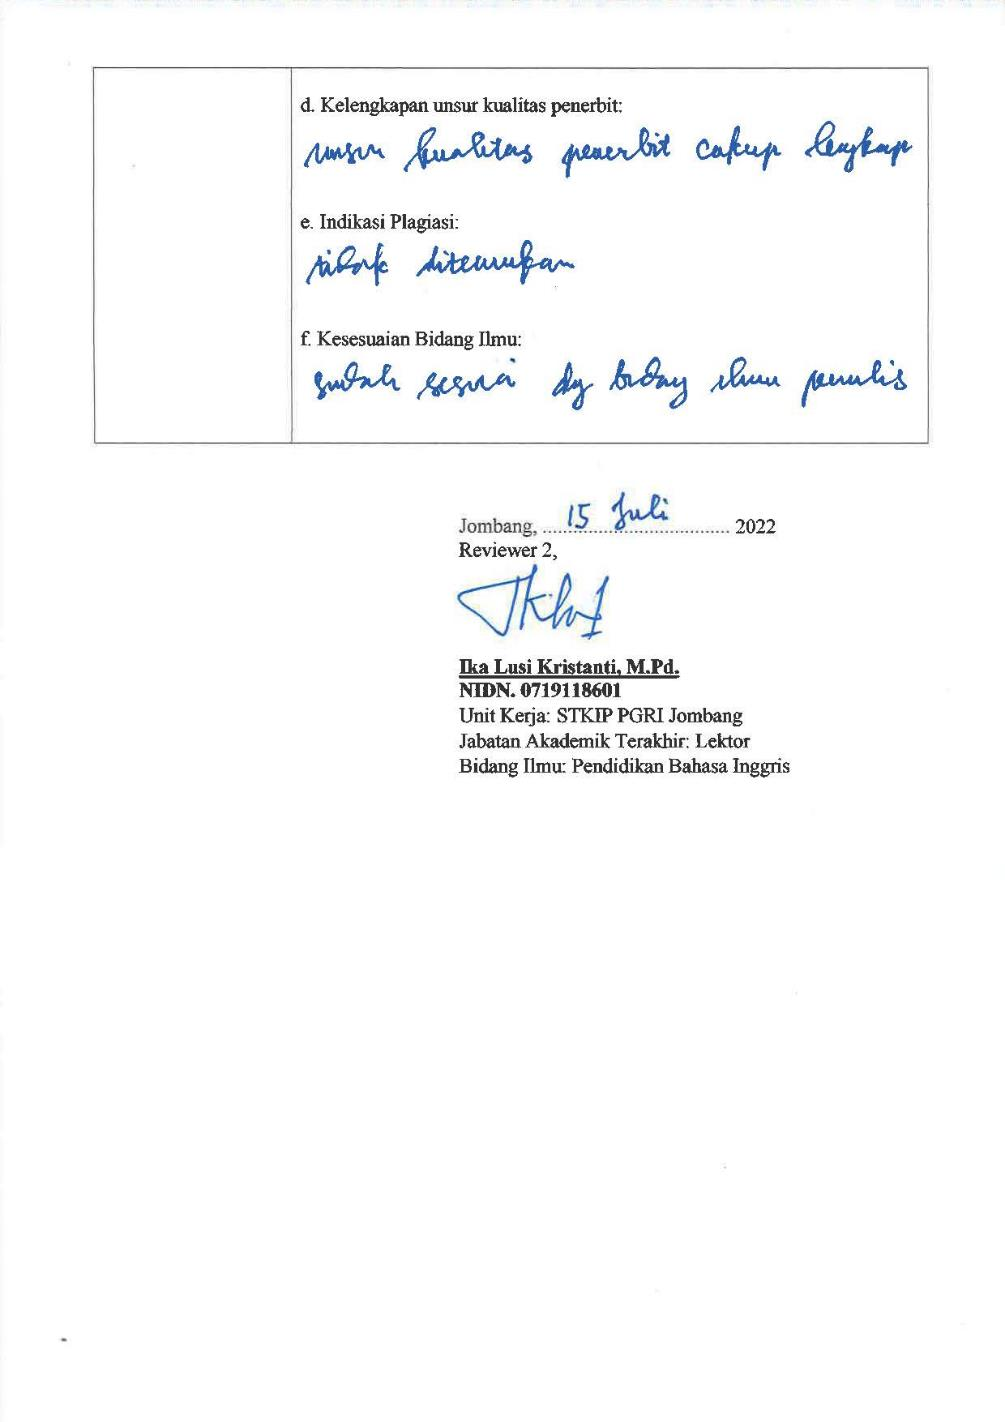 d. Kelengkapan unsur kualitas penerbit:
unsur kualitas penerbit cukup lengkap
e. Indikasi Plagiasi:
tidak ditemukan
f. Kesesuaian Bidang Ilmu:
sudah sesuai dg bidang ilmu penulis
Jombang, ..... 15 Juli ..... 2022
Reviewer 2,
Ika Lusi Kristanti, M.Pd.
NIDN. 0719118601
Unit Kerja: STKIP PGRI Jombang
Jabatan Akademik Terakhir: Lektor
Bidang Ilmu: Pendidikan Bahasa Inggris